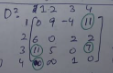 D² 1 2 3 4
1 0 9 -4 11
2 6 0 2 2
3 11 5 0 7
4 ∞ 1 0